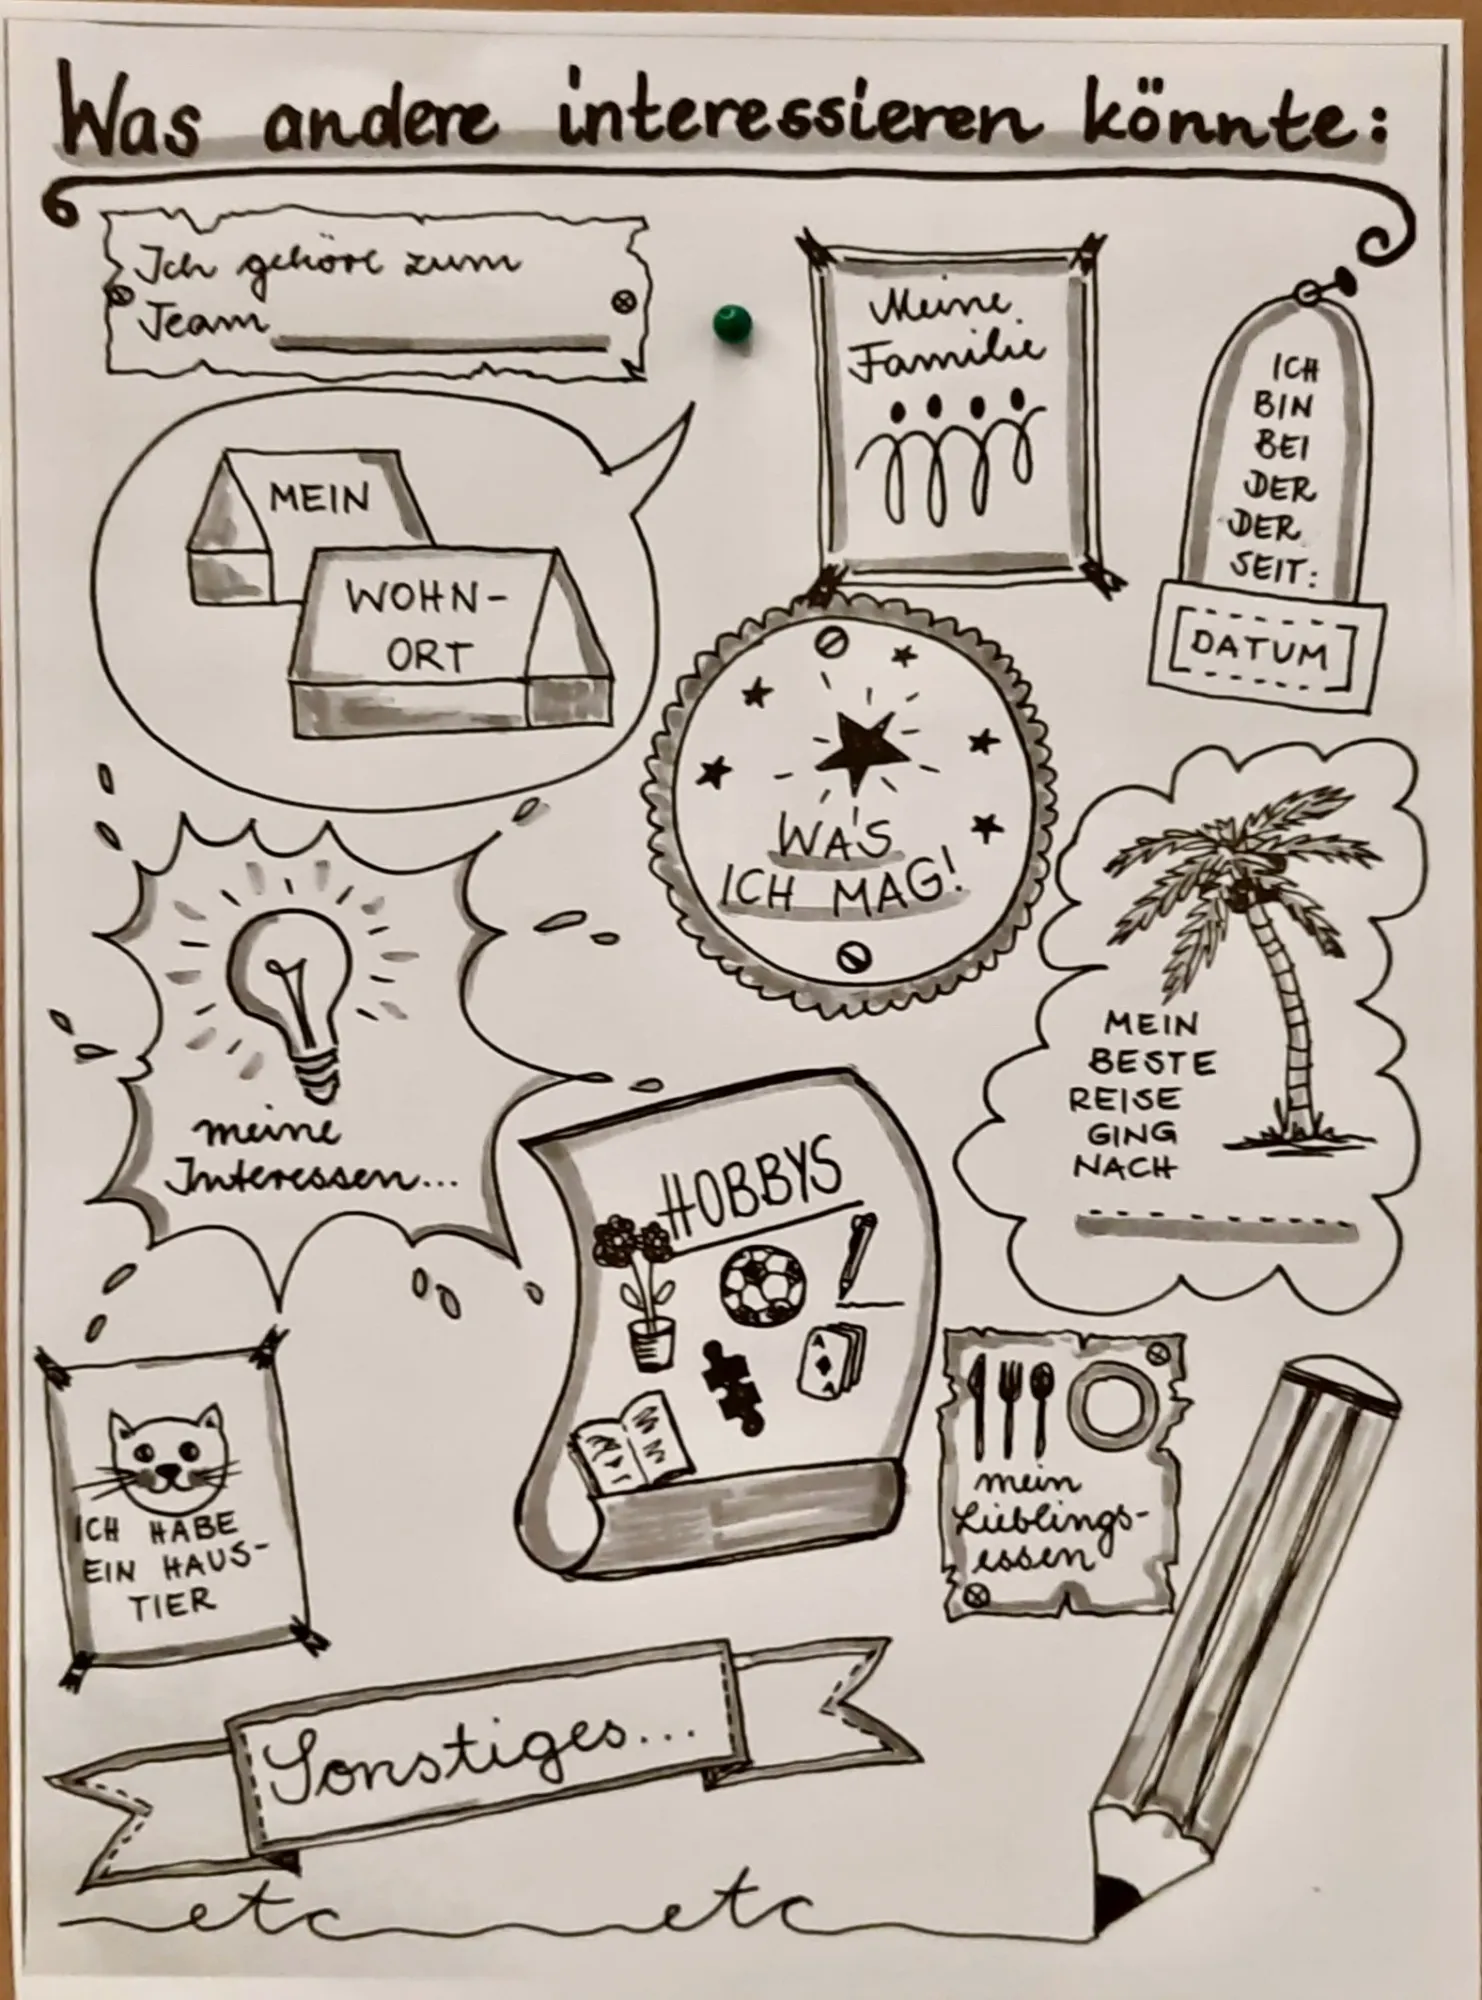 Was andere interessieren könnte:
Ich gehöre zum
Team
Meine
Familie
ICH
BIN
BEI
DER
DER
SEIT:
DATUM
MEIN
WOHN-
ORT
WAS
ICH MAG!
meine
Interessen...
MEIN
BESTE
REISE
GING
NACH
HOBBYS
A
A
ICH HABE
EIN HAUS-
TIER
mein
Lieblings-
essen
Sonstiges...
etc etc